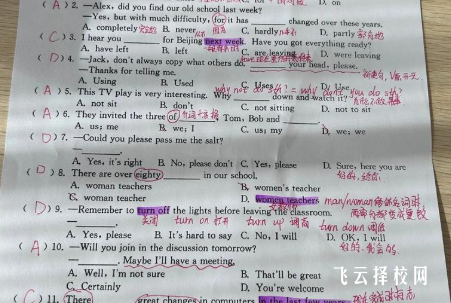 D. on
( A ) 2. —Alex, did you find our old school last week?
—Yes, but with much difficulty, for it has ______ changed over these years.
A. completely 完全地 B. never 从不 C. hardly D. partly 部分地
( C ) 3. I hear you ______ for Beijing next week. Have you got everything ready?
A. have left B. left C. are leaving D. were leaving
( D ) 4. —Jack, don't always copy what others do. ______ your head, please.
—Thanks for telling me.
A. Using B. Used C. Uses D. Use
( A ) 5. This TV play is very interesting. Why ______ down and watch it?
A. not sit B. don't C. not sitting D. not to sit
( A ) 6. They invited the three of Tom, Bob and ______.
A. us; me B. we; I C. us; my D. we; we
( D ) 7. —Could you please pass me the salt?
—______.
A. Yes, it's right B. No, please don't C. Yes, please D. Sure, here you are
( D ) 8. There are over eighty ______ in our school.
A. woman teachers B. women's teacher
C. woman teachers D. women teachers man/woman
( D ) 9. —Remember to turn off the lights before leaving the classroom.
关闭 turn on 打开 turn up 调高 turn down 调低
A. Yes, please B. It's hard to say C. No, I will D. OK, I will
( A ) 10. —Will you join in the discussion tomorrow?
—______. Maybe I'll have a meeting.
A. Well, I'm not sure B. That'll be great
C. Certainly D. You're welcome
( C ) 11. There ______ great changes in computers in the last few
飞云择校网